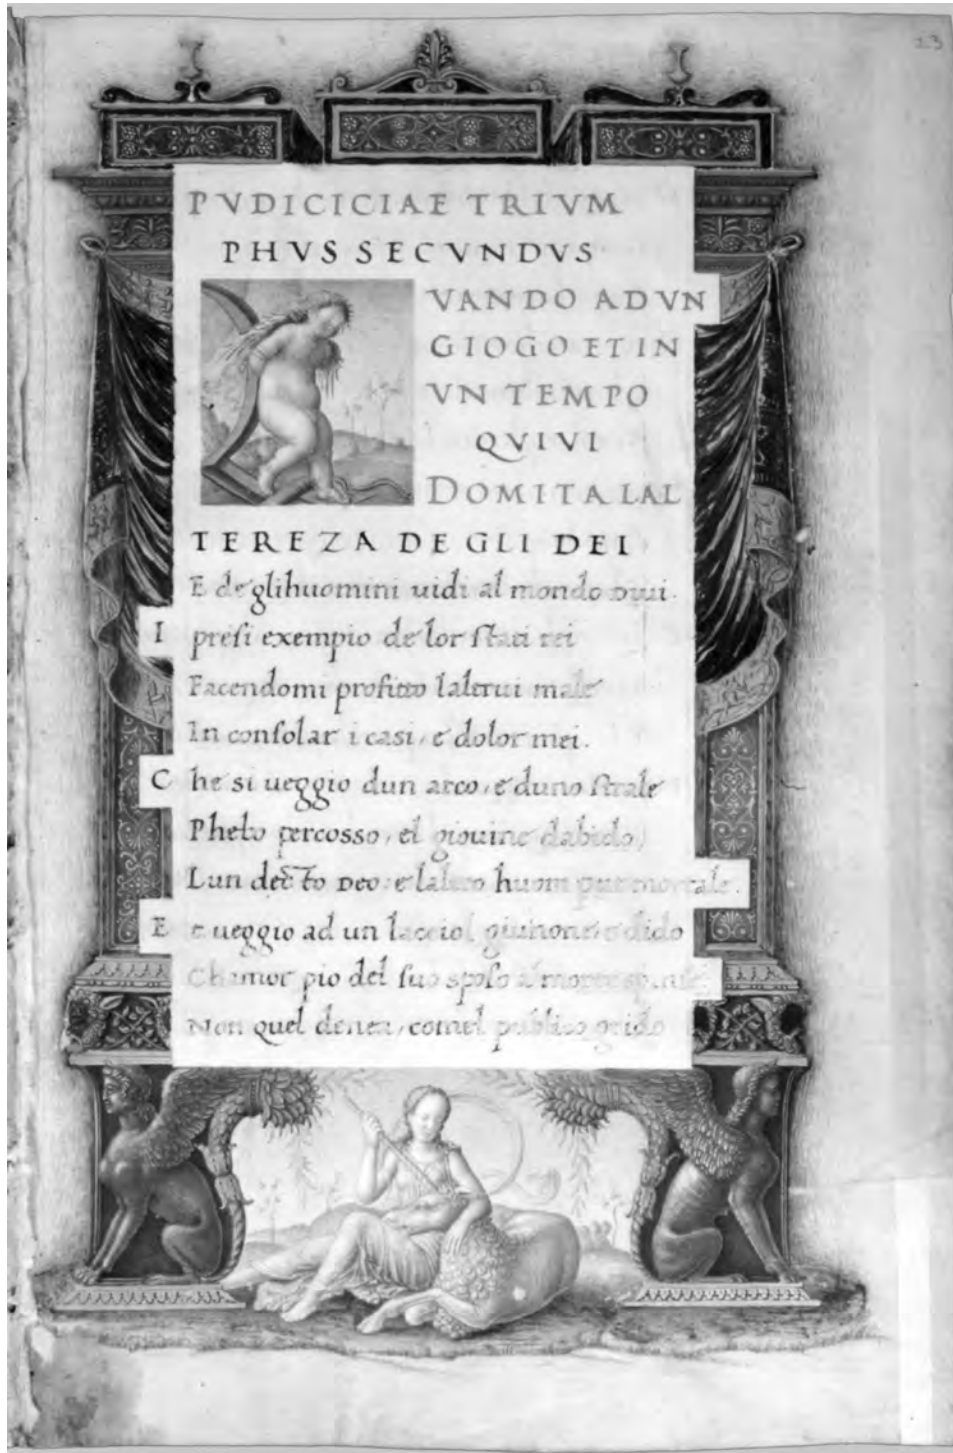 23
PVDICICIAE TRIVM
PHVS SECVNDVS
VANDO AD VN
GIOGO ET IN
VN TEMPO
QVIVI
DOMITA LAL
TEREZA DE GLI DEI
E de glihuomini uidi al mondo diui.
I presi exempio de lor stati rei
Facendomi profitto laltrui male
In consolar i casi, e dolor mei.
C he si ueggio dun arco, e duno strale
Phebo percosso, el giouine dabido,
Lun decto deo: e laltro huom pur mortale.
E t ueggio ad un lacciol giunone, e dido
Chamor pio del suo sposo a morte spinse.
Non quel denea, comel publico grido